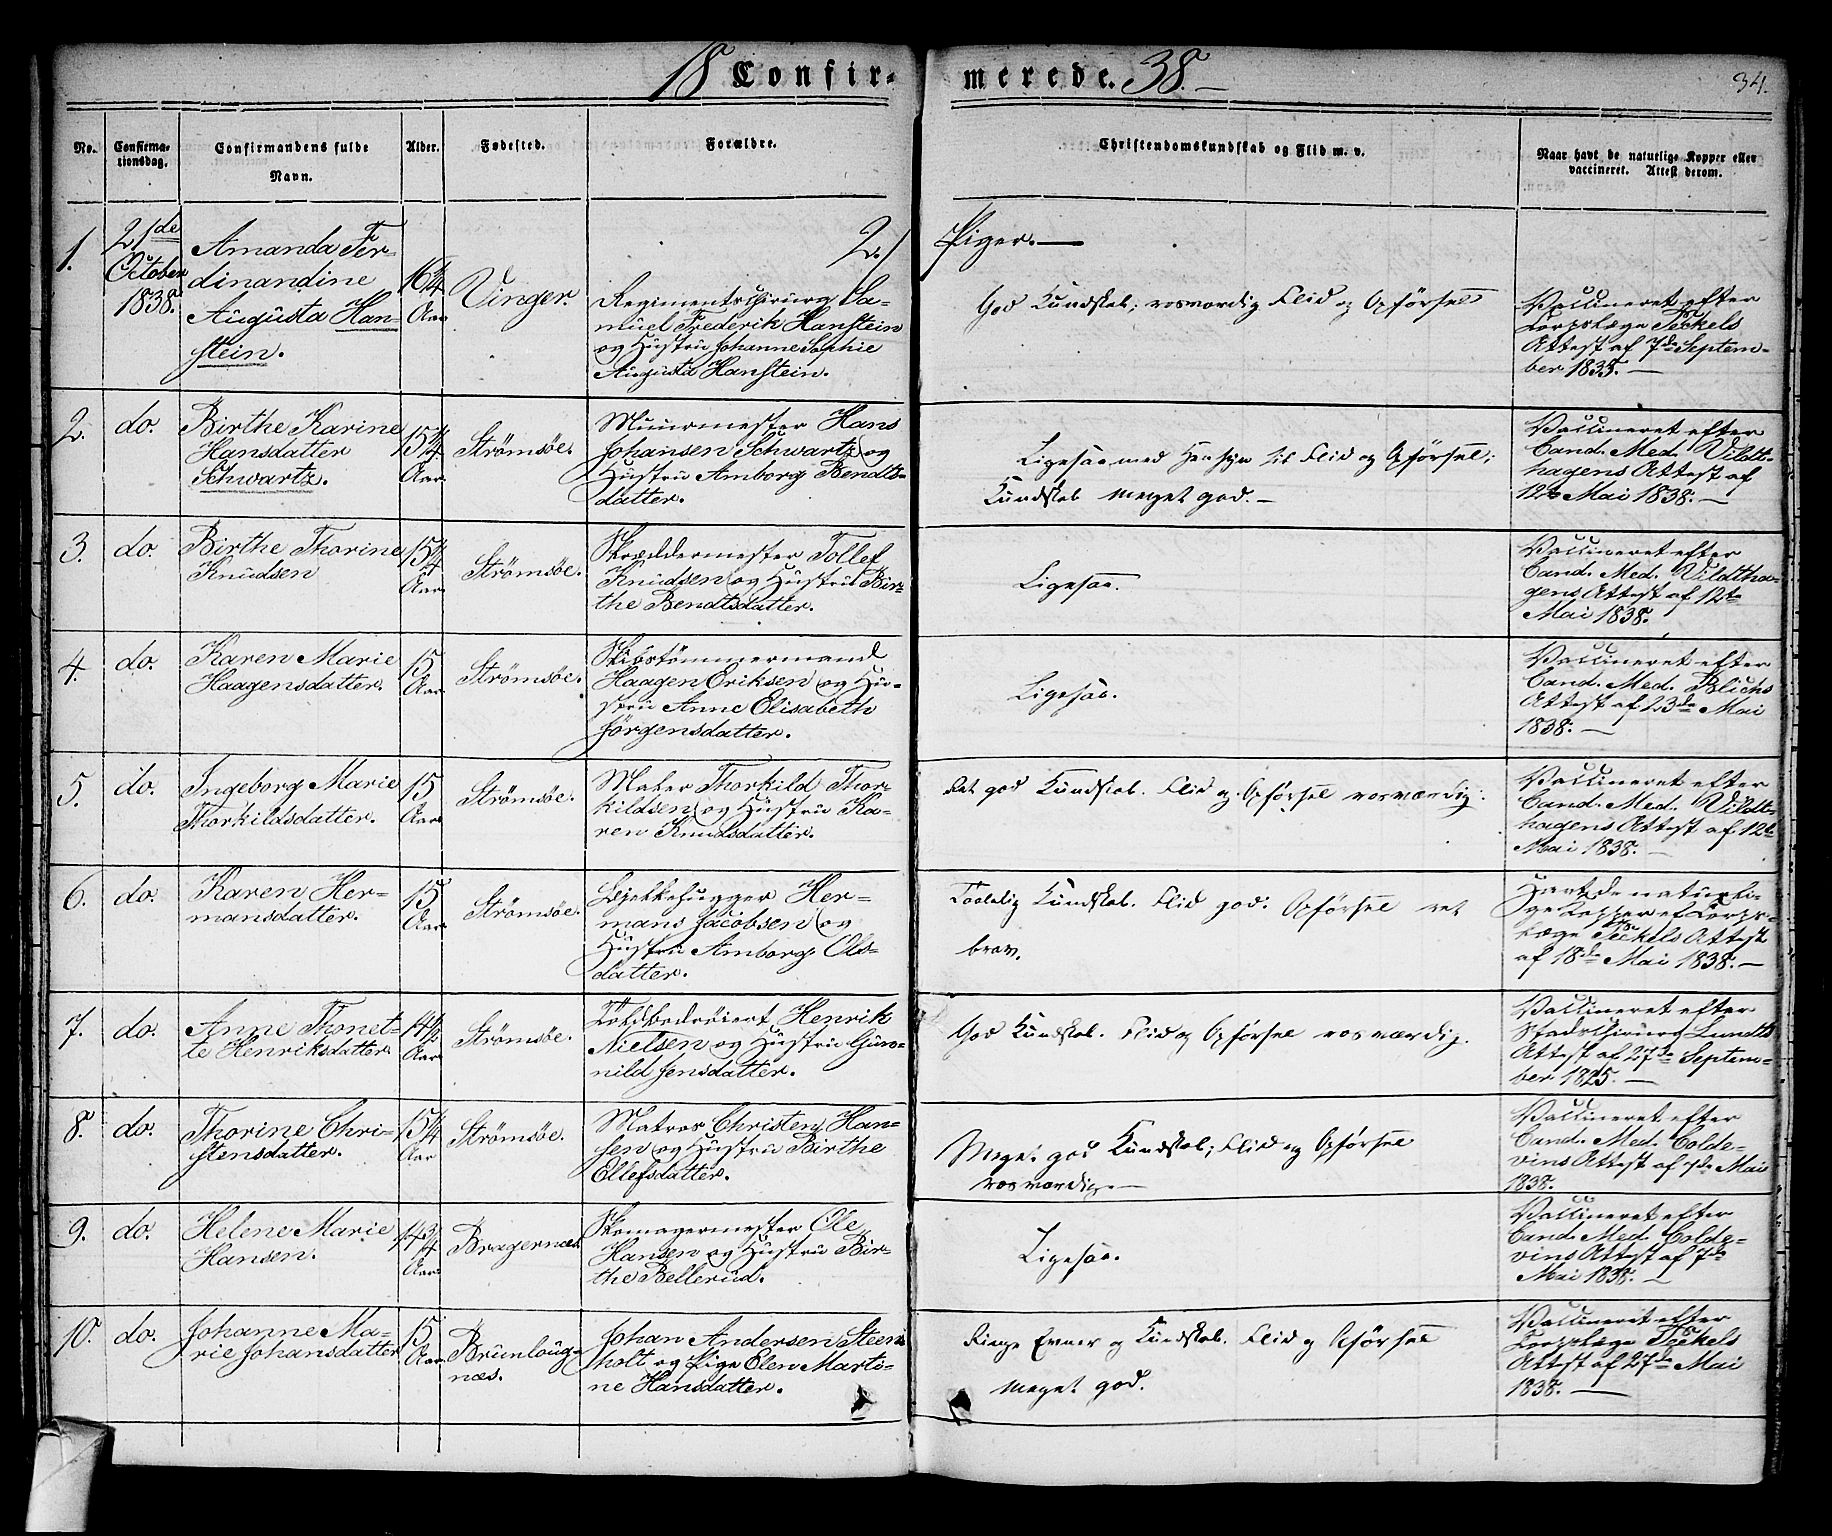 18 Confirmerede. 38.
34.
No.
Confirma-
tionsdag.
Confirmandens fulde
Navn.
Alder.
Fødested.
Forældre.
Christendomskundskab og Flid m. v.
Naar havt de naturlige Kopper eller
vaccineret. Attest derom.
2./ Piger.
1.
21de
October
1838.
Amanda Fer-
dinandine
Augusta Han-
stein.
16 1/4
Aar
Vinger.
Regimentschirurg Sa-
muel Frederik Hanstein
og Hustru Johanne Sophie
Augusta Hanstein.
God Kundskab, rosværdig Flid og Opførsel
Vaccineret efter
Corpslæge Teckels
Attest af 7de Septem-
ber 1835.
2.
do.
Birthe Karine
Hansdatter
Schwartz.
15 1/4
Aar
Strømsøe.
Muurmester Hans
Johansen Schwartz og
Hustru Amborg Bendts-
datter.
Ligesaa med Hensyn til Flid og Opførsel;
Kundskab meget god.
Vaccineret efter
Cand. Med. Vildt-
hagens Attest af
12te Mai 1838.
3.
do.
Birthe Thorine
Knudsen
15 1/4
Aar
Strømsøe.
Skræddermester Tollef
Knudsen og Hustru Bir-
the Bendtsdatter.
Ligesaa.
Vaccineret efter
Cand. Med. Vildtha-
gens Attest af 12te
Mai 1838.
4.
do.
Karen Marie
Haagensdatter.
15
Aar
Strømsøe.
Skibstømmermand
Haagen Eriksen og Hu-
stru Anne Elisabeth
Jørgensdatter.
Ligesaa.
Vaccineret efter
Cand. Med. Blichs
Attest af 23de Mai
1838.
5.
do.
Ingeborg Marie
Thorkildsdatter.
15
Aar
Strømsøe.
Maler Thorkild Thor-
kildsen og Hustru Ka-
ren Knudsdatter.
Ret god Kundskab. Flid og Opførsel rosværdig.
Vaccineret efter
Cand. Med. Vildt-
hagens Attest af 12te
Mai 1838.
6.
do.
Karen Her-
mansdatter.
15
Aar
Strømsøe.
Bjelkehugger Her-
mans Jacobsen og
Hustru Amborg Ols-
datter.
Taalelig Kundskab. Flid god. Opførsel ret
brav.
Havt de naturli-
ge Kopper ef. Corps-
læge Teckels Attest
af 18de Mai 1838.
7.
do.
Anne Thonet-
te Henriksdatter
14 1/2
Aar
Strømsøe.
Toldbedrøiert Henrik
Nielsen og Hustru Gun-
nild Jensdatter.
God Kundskab. Flid og Opførsel rosværdig.
Vaccineret efter
Stadschirurg Lundts
Attest af 27de Septem-
ber 1825.
8.
do.
Thorine Chri-
stensdatter.
15 1/4
Aar
Strømsøe.
Matros Christen Han-
sen og Hustru Birthe
Ellefsdatter.
Meget god Kundskab; Flid og Opførsel
rosværdig.
Vaccineret efter
Cand. Med. Colde-
vins Attest af 7de Mai
1838.
9.
do.
Helene Marie
Hansen.
14 3/4
Aar
Bragernæs.
Skomagermester Ole
Hansen og Hustru Bir-
the Bellerud.
Ligesaa.
Vaccineret efter
Cand. Med. Colde-
vins Attest af 7de
Mai 1838.
10.
do.
Johanne Ma-
rie Johansdatter
15
Aar
Brunlaug-
næs.
Johan Andersen Steen-
holt og Pige Elen Marti-
ne Hansdatter.
Ringe Evner og Kundskab. Flid og Opførsel
meget god.
Vaccineret efter
Corpslæge Teckels
Attest af 27de Mai
1838.